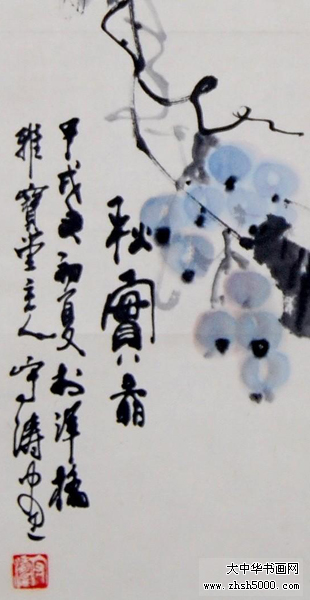 秋實
甲戌年初夏於洋橋
雅寶堂主人守濤
大中华书画网
www.zhsh5000.com